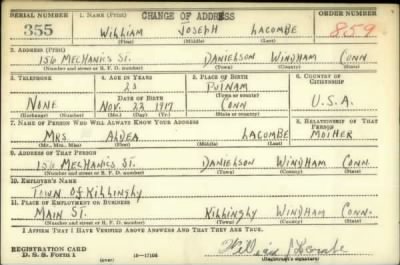 SERIAL NUMBER 1. NAME (Print) CHANGE OF ADDRESS ORDER NUMBER
355 WILLIAM JOSEPH LACOMBE 859
(First) (Middle) (Last)
2. ADDRESS (Print)
156 MECHANICS ST. DANIELSON WINDHAM CONN
(Number and street or R. F. D. number) (Town) (County) (State)
3. TELEPHONE 4. AGE IN YEARS 5. PLACE OF BIRTH 6. COUNTRY OF CITIZENSHIP
23 PUTNAM
DATE OF BIRTH (Town or county)
NONE NOV. 23 1917 CONN U.S.A.
(Exchange) (Number) (Mo.) (Day) (Yr.) (State or country)
7. NAME OF PERSON WHO WILL ALWAYS KNOW YOUR ADDRESS 8. RELATIONSHIP OF THAT PERSON
MRS. ALDEA LACOMBE MOTHER
(Mr., Mrs., Miss) (First) (Middle) (Last)
9. ADDRESS OF THAT PERSON
156 MECHANICS ST. DANIELSON WINDHAM CONN.
(Number and street or R. F. D. number) (Town) (County) (State)
10. EMPLOYER'S NAME
TOWN OF KILLINGLY
11. PLACE OF EMPLOYMENT OR BUSINESS
MAIN ST. KILLINGLY WINDHAM CONN.
(Number and street or R. F. D. number) (Town) (County) (State)
I AFFIRM THAT I HAVE VERIFIED ABOVE ANSWERS AND THAT THEY ARE TRUE.
REGISTRATION CARD
D. S. S. Form 1 (over) 16—17105 (Registrant's signature)